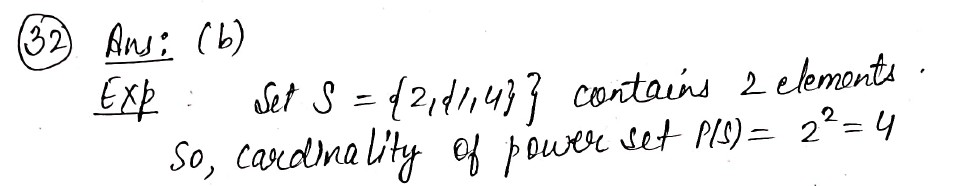 (32) Ans: (b)
Exp : Set S = {2,{1,4}} contains 2 elements.
So, cardinality of power set P(S) = 2² = 4